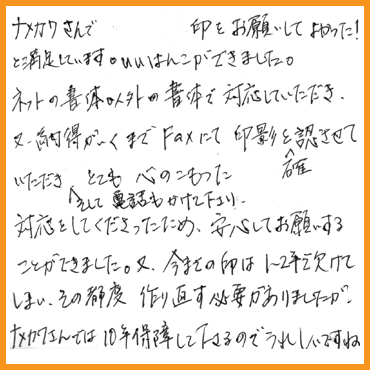 ナメカワさんで 印をお願いしてよかった!
と満足しています。いいはんこができました。
ネットの書体以外の書体で対応していただき、
又、納得がいくまでFaxにて印影を確認させて
いただき、そして電話もかけて下さり、とても心のこもった
対応をしてくださったため、安心してお願いする
ことができました。又、今までの印は1~2年で欠けて
しまい、その都度作り直す必要がありましたが、
ナメカワさんでは10年保障して下さるのでうれしいですね